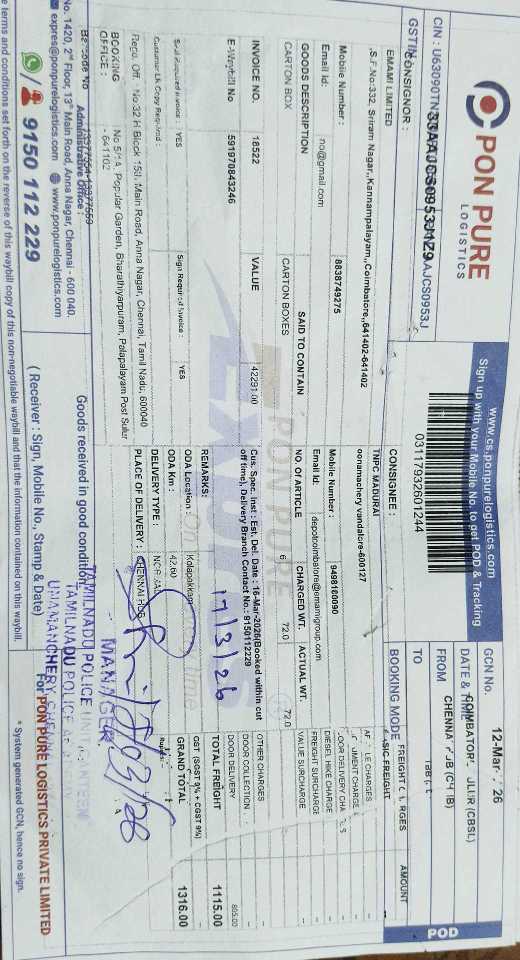 PON PURE
LOGISTICS
www.cs.ponpurelogistics.com
Sign up with your Mobile No. to get POD & Tracking
CIN : U63090TN
GSTIN
33AAJCS0953M1Z9
AAJCS0953J
03117932601244
GCN No.
DATE &
12-Mar- 26
FROM
COIMBATOR
(CBSL)
TO
CHENNA
CONSIGNOR :
EMAMI LIMITED
,S.F.No:332, Sriram Nagar,,Kannampalayam,,Coimbatore,,641402-641402
Mobile Number :
8838749275
Email Id:
no@gmail.com
CONSIGNEE :
TNPC MADURAI
oonamachery vandalore-600127
Mobile Number :
9498160090
Email Id:
depotcoimbatore@emamigroup.com
BOOKING MODE
FREIGHT
AMOUNT
POD
DIESEL HIKE CHARGE
FREIGHT SURCHARGE
VALUE SURCHARGE
OTHER CHARGES
DOOR COLLECTION
DOOR DELIVERY
TOTAL FREIGHT 1115.00
GST (SGST 9% + CGST 9%)
GRAND TOTAL 1316.00
GOODS DESCRIPTION
SAID TO CONTAIN
NO. OF ARTICLE
CHARGED WT.
ACTUAL WT.
CARTON BOX
CARTON BOXES
6
72.0
72.0
INVOICE NO.
18522
VALUE
42291.00
E-Waybill No
591970843246
Cus. Spec. Inst : Est. Del. Date : 16-Mar-2026(Booked within cut
off time), Delivery Branch Contact No.: 9150112229
REMARKS:
17/3/26
YES
Sign Required Invoice :
YES
ODA Location :
Kolapakkam
ODA Km :
42.60
DELIVERY TYPE :
PLACE OF DELIVERY :
Regd. Off. : No.32 H Block 15th Main Road, Anna Nagar, Chennai, Tamil Nadu, 600040
BOOKING
OFFICE :
No 5/1A, Popular Garden, Bharathiyarpuram, Palapalayam Post Sulur
- 641102
18/03/26
MANAGER
TAMILNADU POLICE
TAMILNADU POLICE
UNAMANCHERY, CHENNAI
Administrative Office :
No. 1420, 2nd Floor, 13th Main Road, Anna Nagar, Chennai - 600 040.
expres@ponpurelogistics.com
www.ponpurelogistics.com
9150 112 229
Goods received in good condition
( Receiver : Sign, Mobile No., Stamp & Date)
For PON PURE LOGISTICS PRIVATE LIMITED
* System generated GCN, hence no sign.
e terms and conditions set forth on the reverse of this waybill copy of this non-negotiable waybill and that the information contained on this waybill.